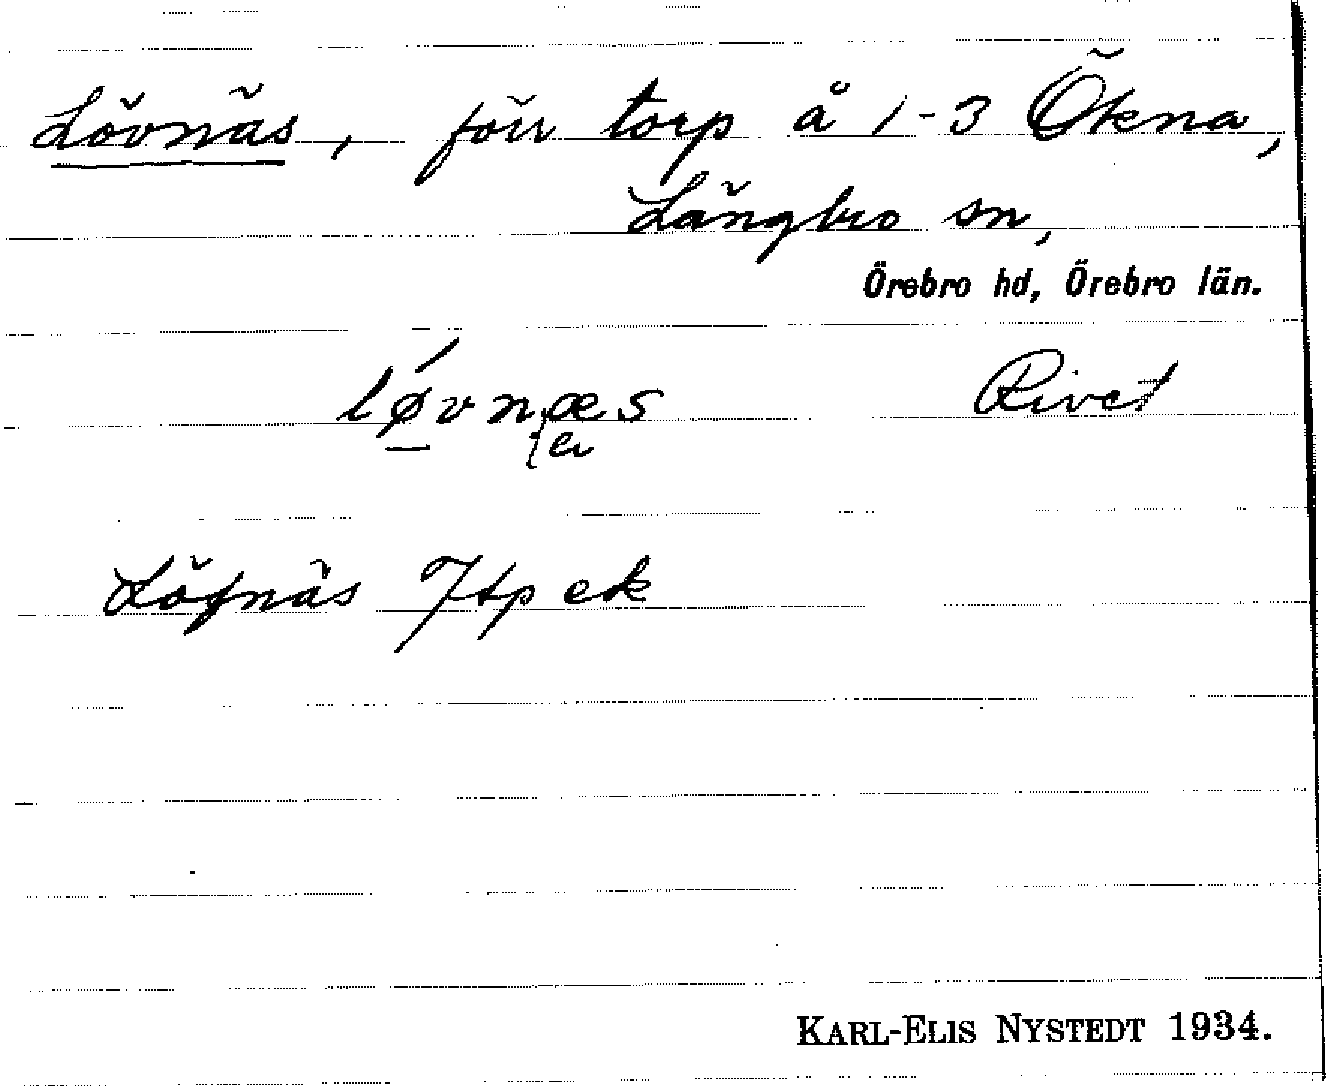 Lövnäs, förr torp å 1-3 Ökna,
Längbro sn,
Örebro hd, Örebro län.
lǿvnæs Rivet
Löfnäs Jtp ek
KARL-ELIS NYSTEDT 1934.